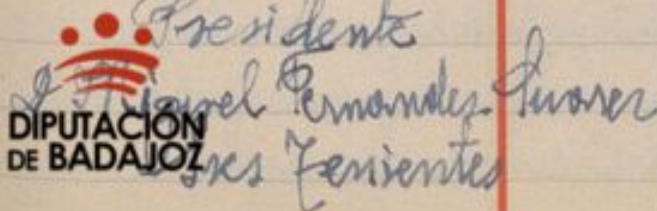 Presidente
D Miguel Fernandez Suarez
DIPUTACIÓN
DE BADAJOZ
Sres Tenientes